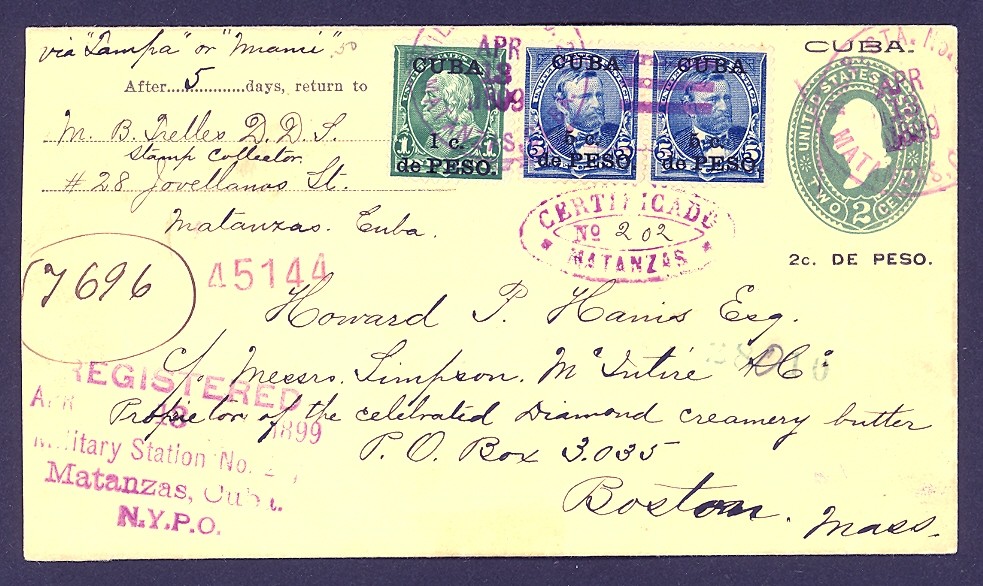 via "Tampa" or "Miami" 50
After....5....days, return to
M. B. Trelles D.D.S.
Stamp Collector
# 28 Jovellanos St.
Matanzas. Cuba.
CUBA
1 c.
de PESO.
1 1
CUBA
5 c.
de PESO
5 5
CUBA
5 c.
de PESO.
5 5
APR
1899
CUBA.
UNITED STATES
TWO 2 CENTS
2c. DE PESO.
APR
1899
CERTIFICADO
No 202
MATANZAS
7696
45144
Howard P. Harris Esq.
c/o Messrs. Simpson. McIntire & Co
Proprietor of the celebrated Diamond creamery butter
P. O. Box 3.035
Boston. Mass.
REGISTERED
APR 13 1899
Military Station No.
Matanzas, Cuba.
N.Y.P.O.